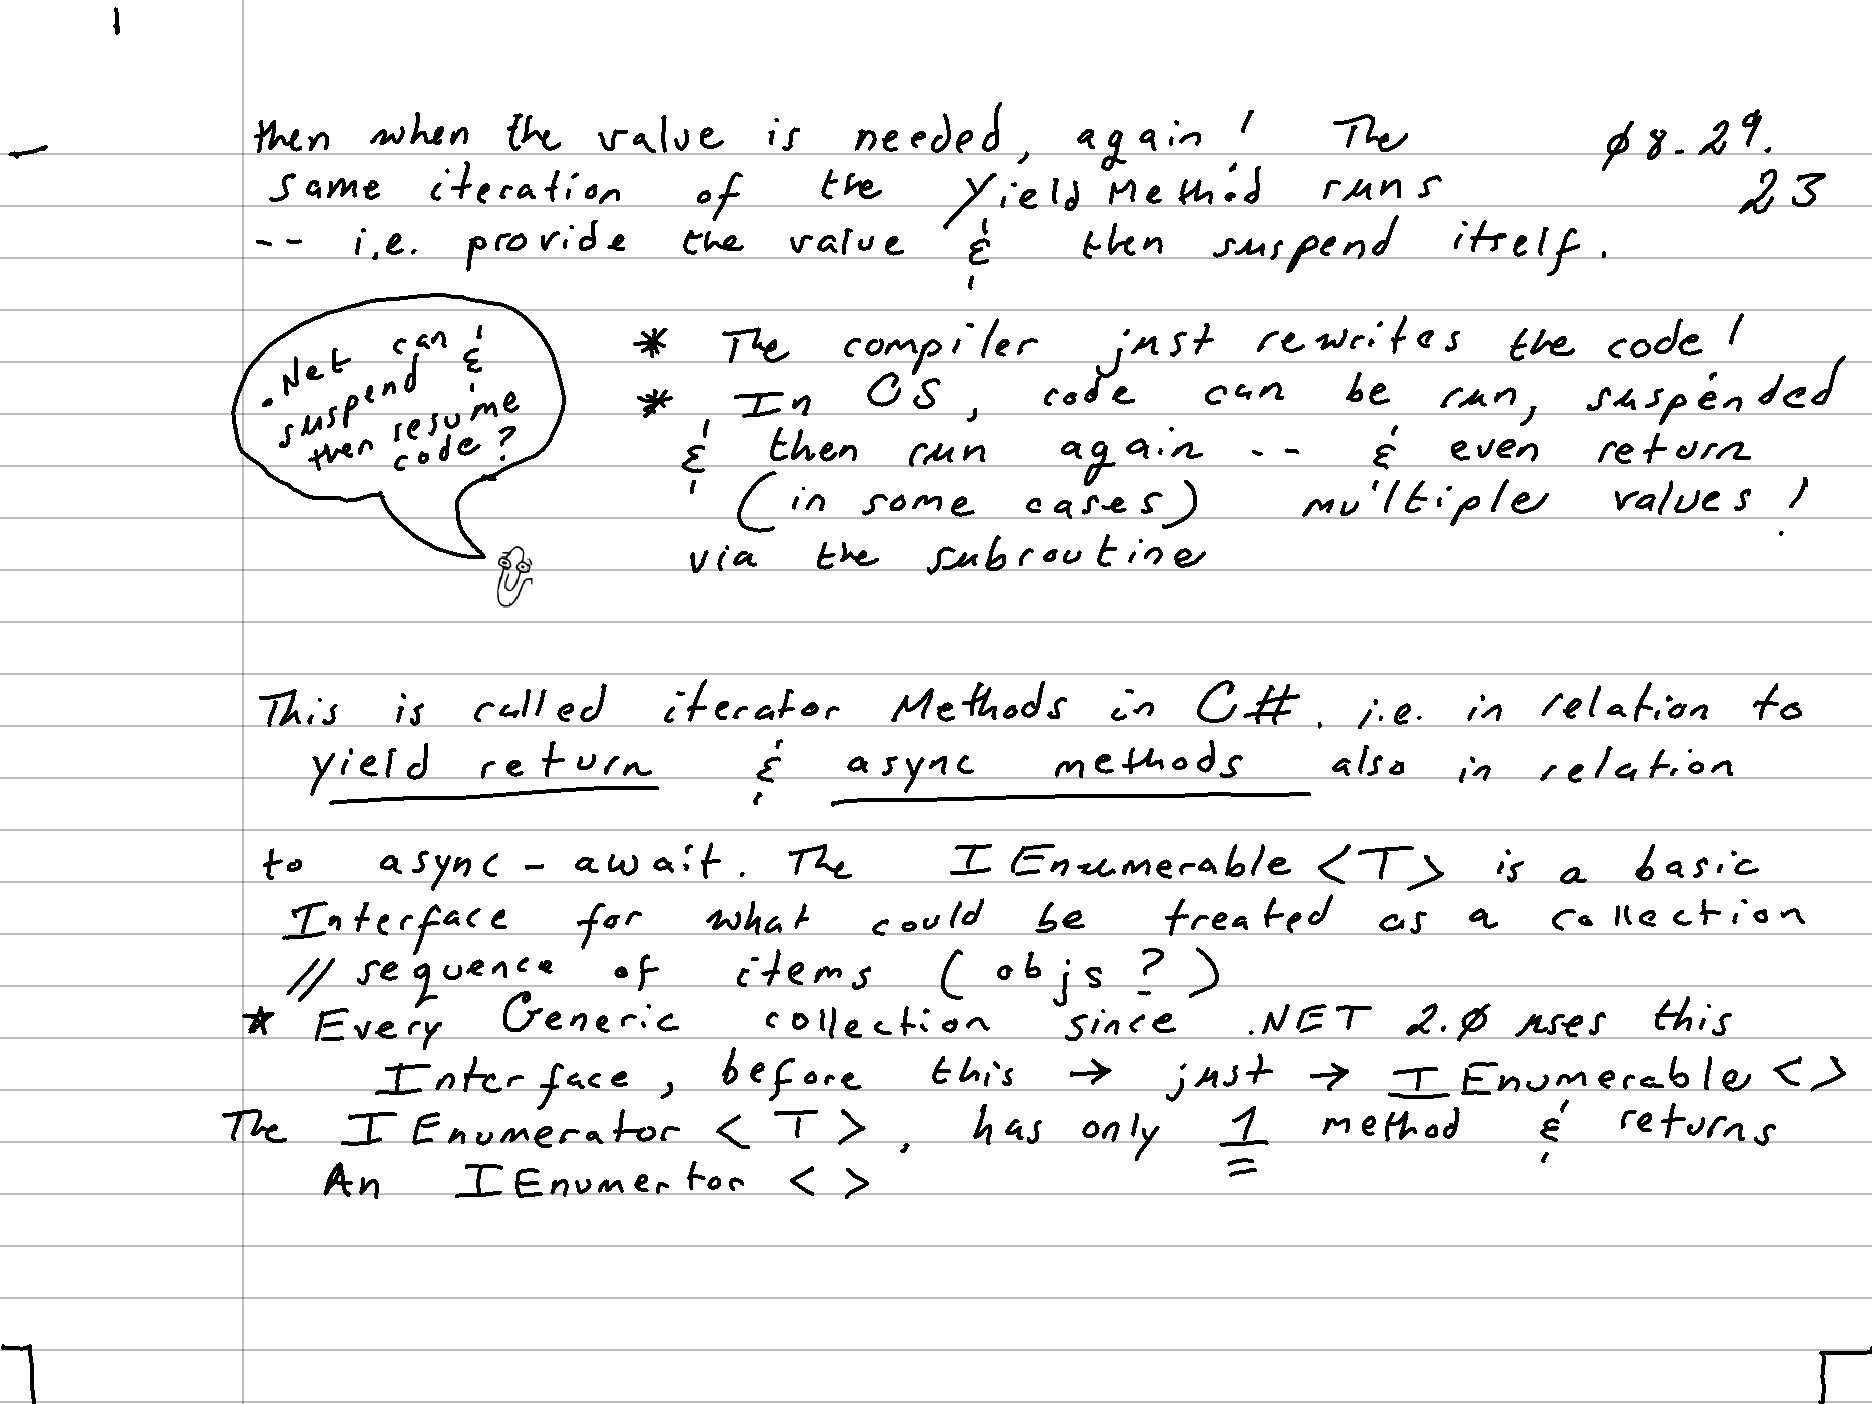 then when the value is needed, again! The
ø8.29.
same iteration of the Yield Method runs
23
-- i.e. provide the value & then suspend itself.
.Net can &
suspend
then resume
code?
* The compiler just rewrites the code!
* In CS, code can be run, suspended
& then run again -- & even return
(in some cases) multiple values!
via the subroutine
This is called iterator Methods in C#. i.e. in relation to
yield return & async methods also in relation
to async-await. The IEnumerable <T> is a basic
Interface for what could be treated as a collection
// sequence of items (objs?)
* Every Generic collection since .NET 2.ø uses this
Interface, before this → just → IEnumerable <>
The IEnumerator <T>, has only 1 method & returns
An IEnumertor <>